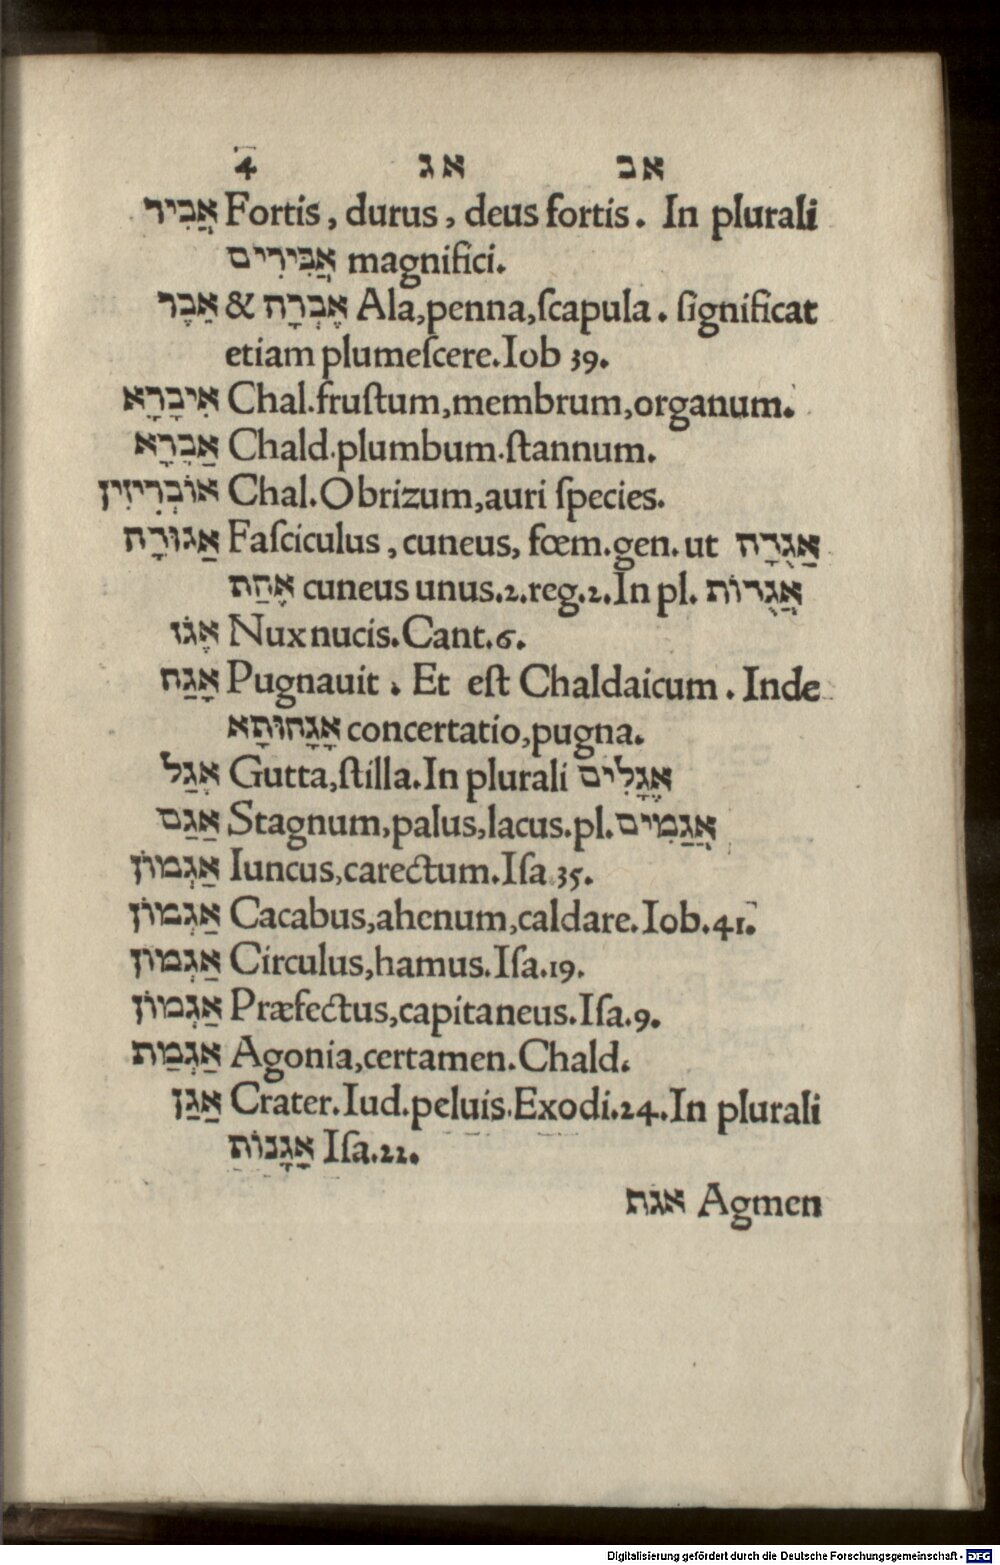 4 אג אב
אֲבִיר Fortis, durus, deus fortis. In plurali
אֲבִּירִים magnifici.
אֵבֶר & אֶבְרָה Ala,penna,ſcapula. ſignificat
etiam plumeſcere.Iob 39.
אִיבָרָא Chal.fruſtum,membrum,organum.
אַבָרָא Chald.plumbum.ſtannum.
אוֹבְרִיזִין Chal.Obrizum,auri ſpecies.
אַגוּרָה Faſciculus, cuneus, fœm.gen.ut אַגֻרָה
אֶחַת cuneus unus.2.reg.2.In pl. אֲגֻרוֹת
אֶגוֹז Nux nucis.Cant.6.
אָגַח Pugnauit. Et eſt Chaldaicum. Inde
אָגָחוּתָא concertatio,pugna.
אֶגַל Gutta,ſtilla.In plurali אֶגָלִים
אַגַם Stagnum,palus,lacus.pl. אֲגַמִים
אַגְמוֹן Iuncus,carectum.Iſa.35.
אַגְמוֹן Cacabus,ahenum,caldare.Iob.41.
אַגְמוֹן Circulus,hamus.Iſa.19.
אַגְמוֹן Præfectus,capitaneus.Iſa.9.
אַגְמַת Agonia,certamen.Chald.
אַגַן Crater.Iud.peluis.Exodi.24.In plurali
אָגָנוֹת Iſa.22.
אגת Agmen
Digitalisierung gefördert durch die Deutsche Forschungsgemeinschaft - DFG